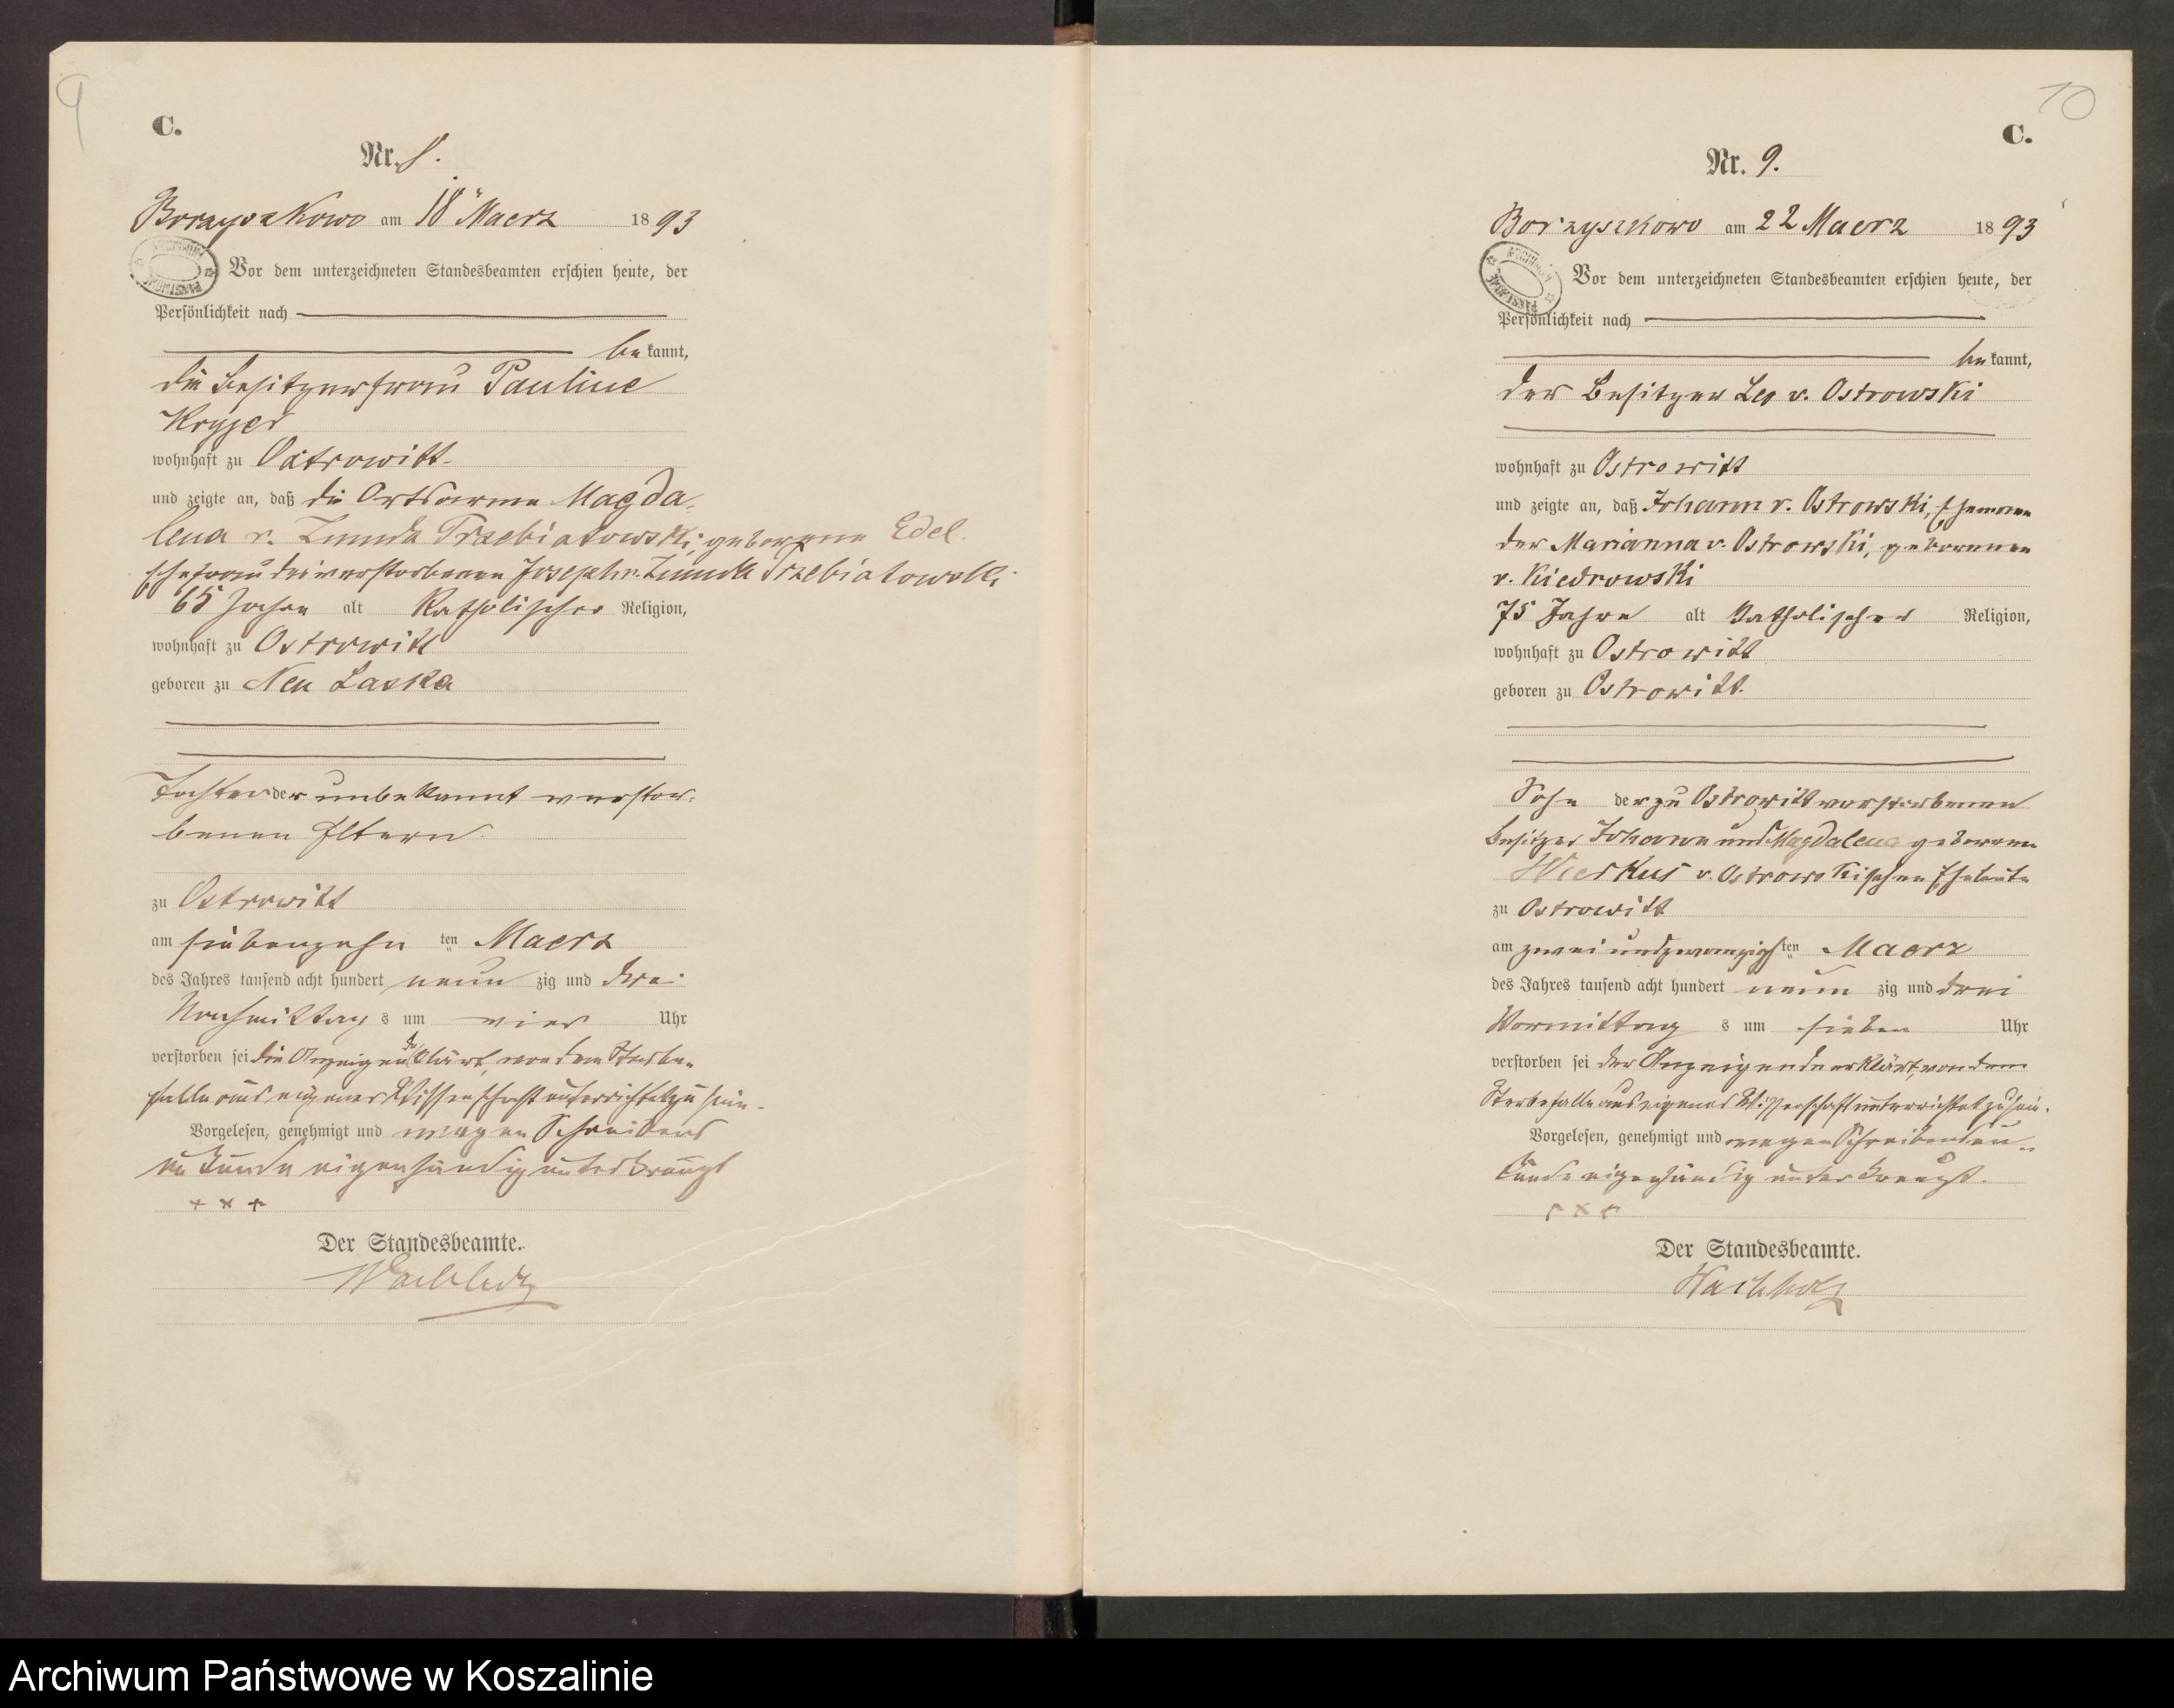 9
C.
Nr. 8.
Borzyszkowo am 18 Maerz 1893
Vor dem unterzeichneten Standesbeamten erschien heute, der
Persönlichkeit nach
bekannt,
die Besitzerfrau Pauline
Kryger
wohnhaft zu Ostrowitt
und zeigte an, daß die Ortsarme Magda-
lena v. Zmuda Trzebiatowski, geborene Edel
Ehefrau des verstorbenen Joseph v. Zmuda Trzebiatowski
65 Jahre alt Katholischer Religion,
wohnhaft zu Ostrowitt
geboren zu Neu Laska
Tochter der unbekannt verstor-
benen Eltern
zu Ostrowitt
am siebenzehn ten Maerz
des Jahres tausend acht hundert neun zig und drei
Nachmittag s um vier Uhr
verstorben sei die Anzeigende erklärt, von dem Sterbe-
falle aus eigener Wissenschaft unterrichtet zu sein.
Vorgelesen, genehmigt und wegen Schreibens
un Kunde eigenhändig unterkreuzt
+ × +
Der Standesbeamte.
Wachholz
10
C.
Nr. 9.
Borzyszkowo am 22 Maerz 1893
Vor dem unterzeichneten Standesbeamten erschien heute, der
Persönlichkeit nach
bekannt,
der Besitzer Leo v. Ostrowski
wohnhaft zu Ostrowitt
und zeigte an, daß Johann v. Ostrowski, Ehemann
der Marianna v. Ostrowski, geborenen
v. Kiedrowski
75 Jahre alt Katholischer Religion,
wohnhaft zu Ostrowitt
geboren zu Ostrowitt.
Sohn der zu Ostrowitt verstorbenen
Besitzer Johann und Magdalena geborene
v. Ostrowskischen Eheleute
zu Ostrowitt
am zweiundzwanzigsten Maerz
des Jahres tausend acht hundert neun zig und drei
Vormittag s um sieben Uhr
verstorben sei der Anzeigende erklärt, von dem
Sterbefalle aus eigener Wissenschaft unterrichtet zu sein.
Vorgelesen, genehmigt und wegen Schreibens un-
kunde eigenhändig unterkreuzt.
+ × +
Der Standesbeamte.
Wachholz
Archiwum Państwowe w Koszalinie